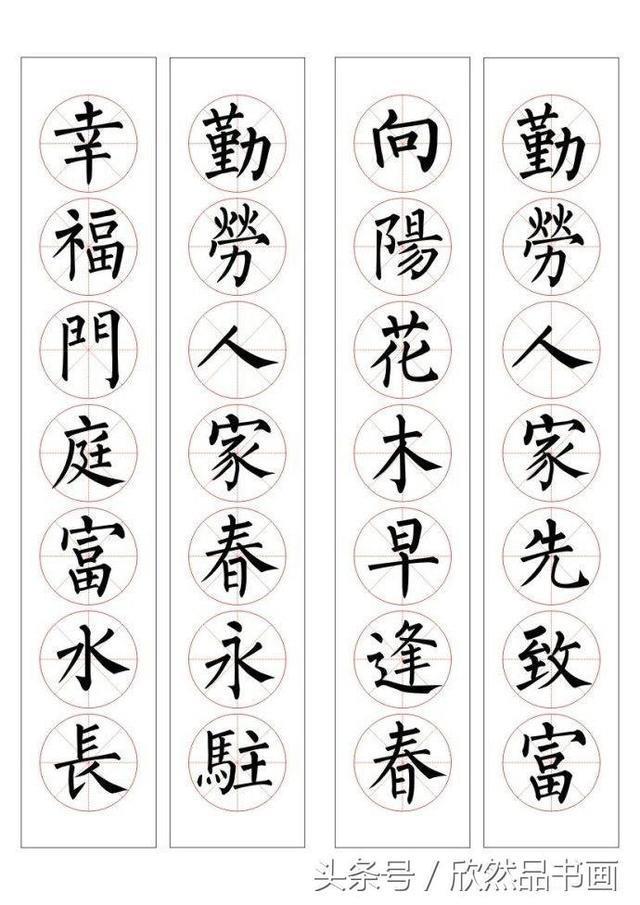 勤勞人家先致富
向陽花木早逢春
勤勞人家春永駐
幸福門庭富水長
头条号 / 欣然品书画